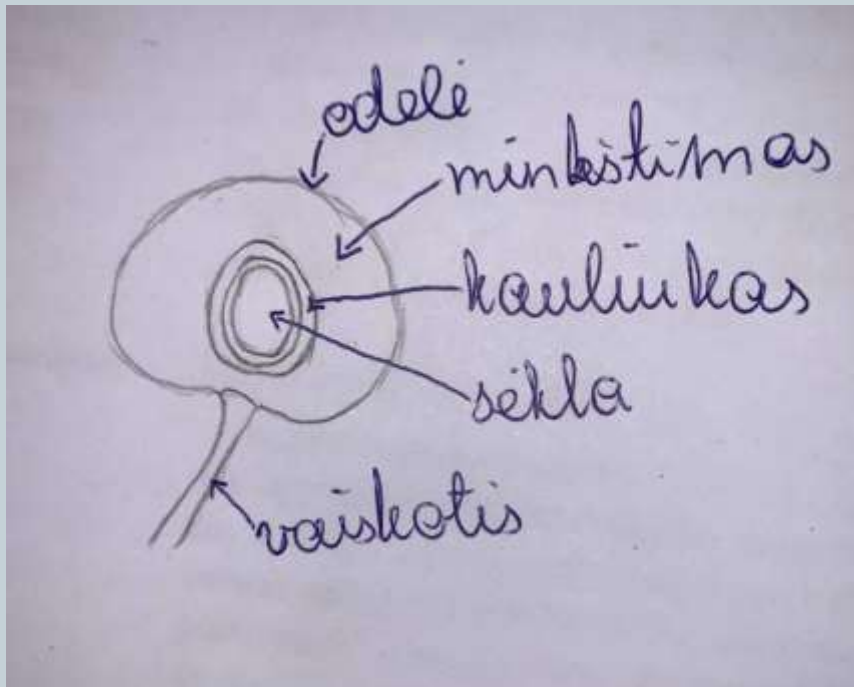 odelė
minkštimas
kauliukas
sėkla
vaiskotis